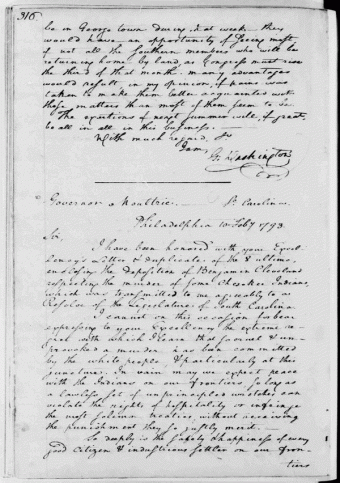 316
be in George town during that week. they
would have an opportunity of seeing most
if not all the Southern members who will be
returning home by land, as Congress must rise
the third of that month. many advantages
would result in my opinion, if pains was
taken to make them better acquainted with
these matters than most of them seem to be.
The exertions of next summer will, I great,
be all in all in this business. —
With much regard, &c
I am,
Go Washington
Governor Moultrie. So Carolina.
Philadelphia 10 Feby 1793
Sir,
I have been honored with your Excel
lency's letter & duplicate of the ultimo,
enclosing the deposition of Benjamin Cleveland
respecting the murder of some Cherokee Indians,
which was transmitted to me agreeably to a
Resolve of the Legislature of South Carolina.
I cannot on this occasion forbear
expressing to your Excellency the extreme re
gret with which I learn that so cruel & un
provoked a murder has been committed
by the white people & particularly at this
juncture. In vain may we expect peace
with the Indians on our frontiers, so long as
a lawless set of unprincipled wretches can
violate the rights of hospitality or infringe
the most solemn treaties, without receiving
the punishment they so justly merit. —
So deeply is the safety & happiness of every
good Citizen & industrious settler on our fron-
tiers